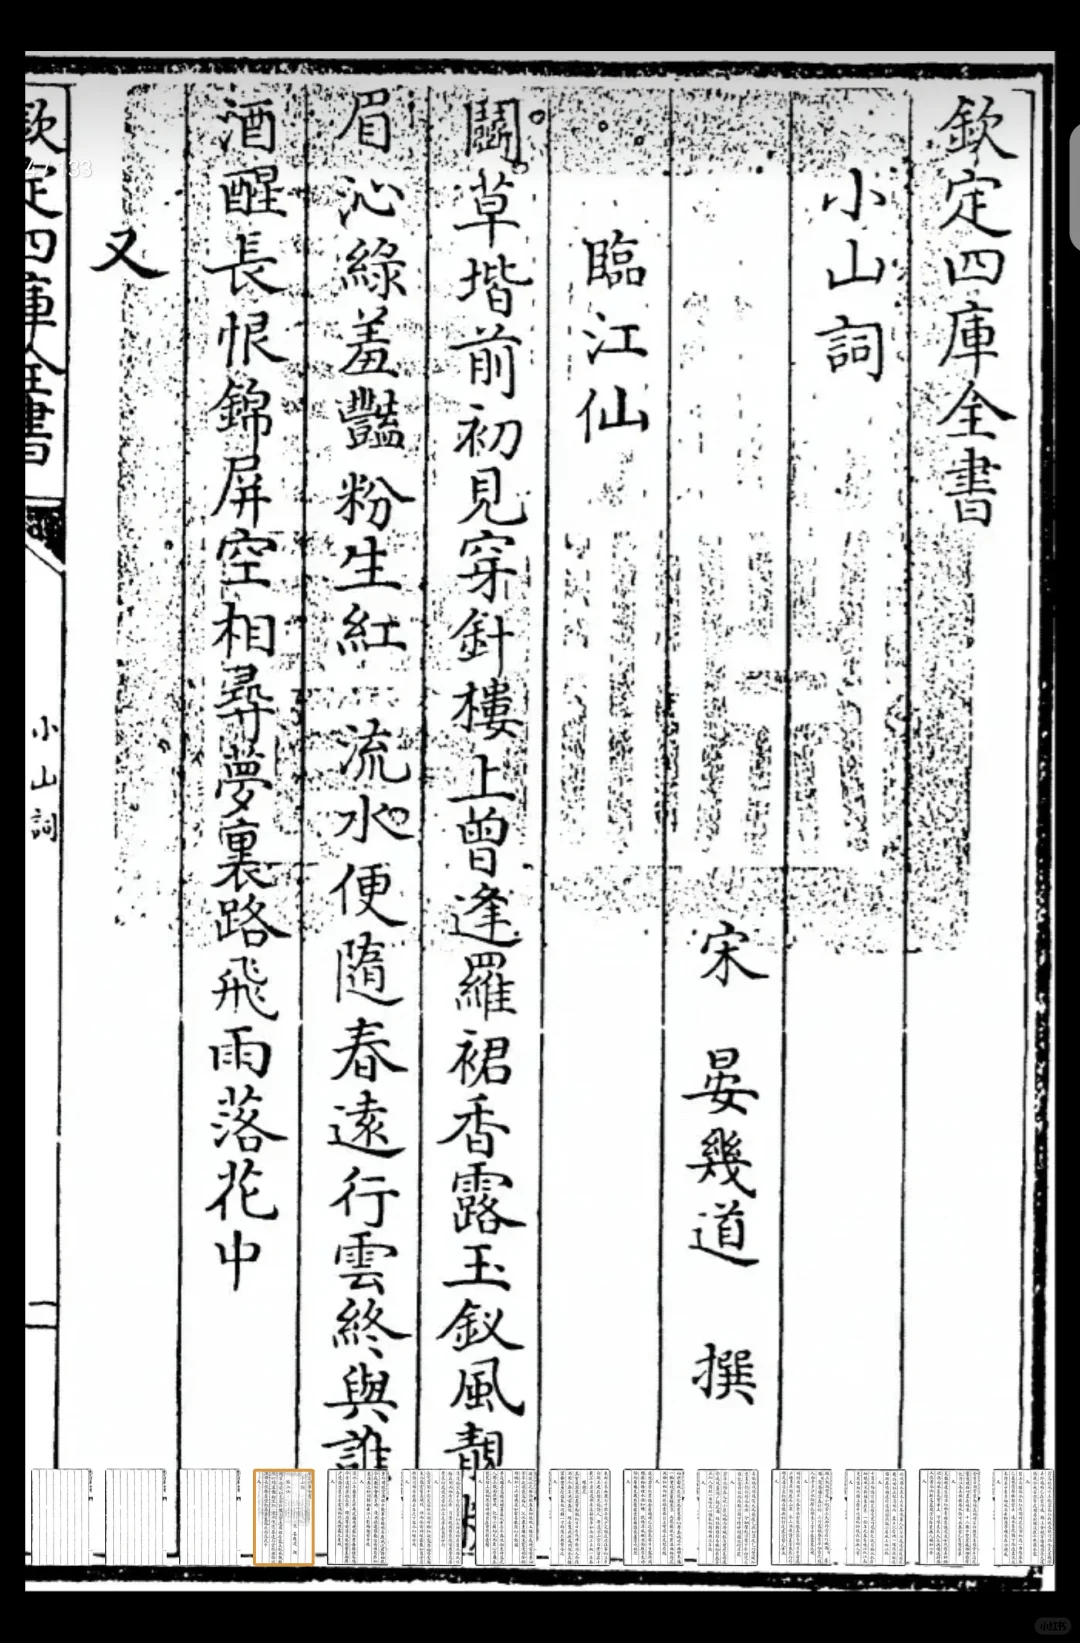 欽定四庫全書
小山詞
宋 晏幾道 撰
臨江仙
鬭草堦前初見穿針樓上曽逢羅裙香露玉釵風靚
眉沁綠羞豔粉生紅 流水便隨春逺行雲終與誰
酒醒長恨錦屏空相尋夢裏路飛雨落花中
又
欽定四庫全書
小山詞
一
/ 133
小红书